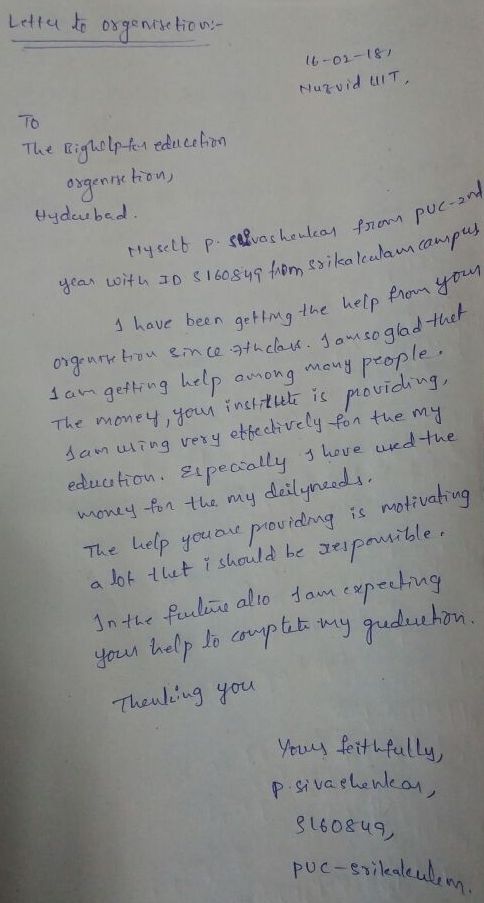 Letter to organisetion:-
16-02-18,
Nuzvid IIIT,
To
The Bighelp for education
organise tion,
Hyderbad.
Myself p. sivashenkar from puc-2nd
year with ID S160849 from srikakulam campus
I have been getting the help from your
organise tion since 7th class. I am so glad thet
I am getting help among many people.
The money, your institute is providing,
I am using very effectively for the my
education. Especially I have used the
money for the my deilyneeds.
The help you are providing is motivating
a lot thet i should be responsible.
In the future also I am expecting
your help to complete my greduetion.
Thenking you
Yours feithfully,
p. sivashenkar,
S160849,
PUC-srikakulem.